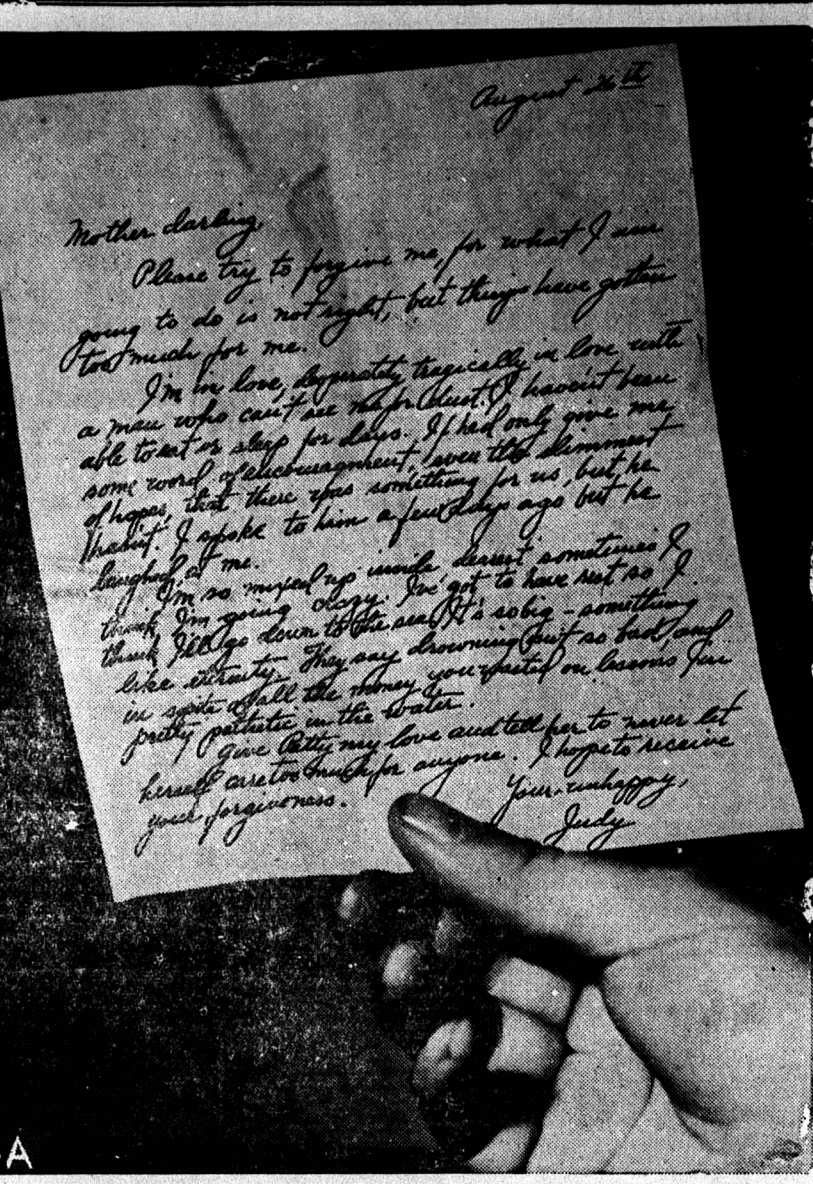 August 26th
Mother darling,
Please try to forgive me, for what I am
going to do is not right, but things have gotten
too much for me.
I'm in love, desperately, tragically in love with
a man who can't see me for dust. I haven't been
able to eat or sleep for days. If he'd only give me
some word of encouragement, even the slimmest
of hopes, that there was something for us, but he
hasn't. I spoke to him a few days ago but he
laughed at me.
I'm so mixed up inside dearest sometimes I
think I'm going crazy. I've got to have rest so I
think I'll go down to the sea. It's so big - something
like eternity. They say drowning isn't so bad, and
in spite of all the money you wasted on lessons I'm
pretty pathetic in the water.
Give Betty my love and tell her to never let
herself care too much for anyone. I hope to receive
your forgiveness.
Your unhappy,
Judy
A